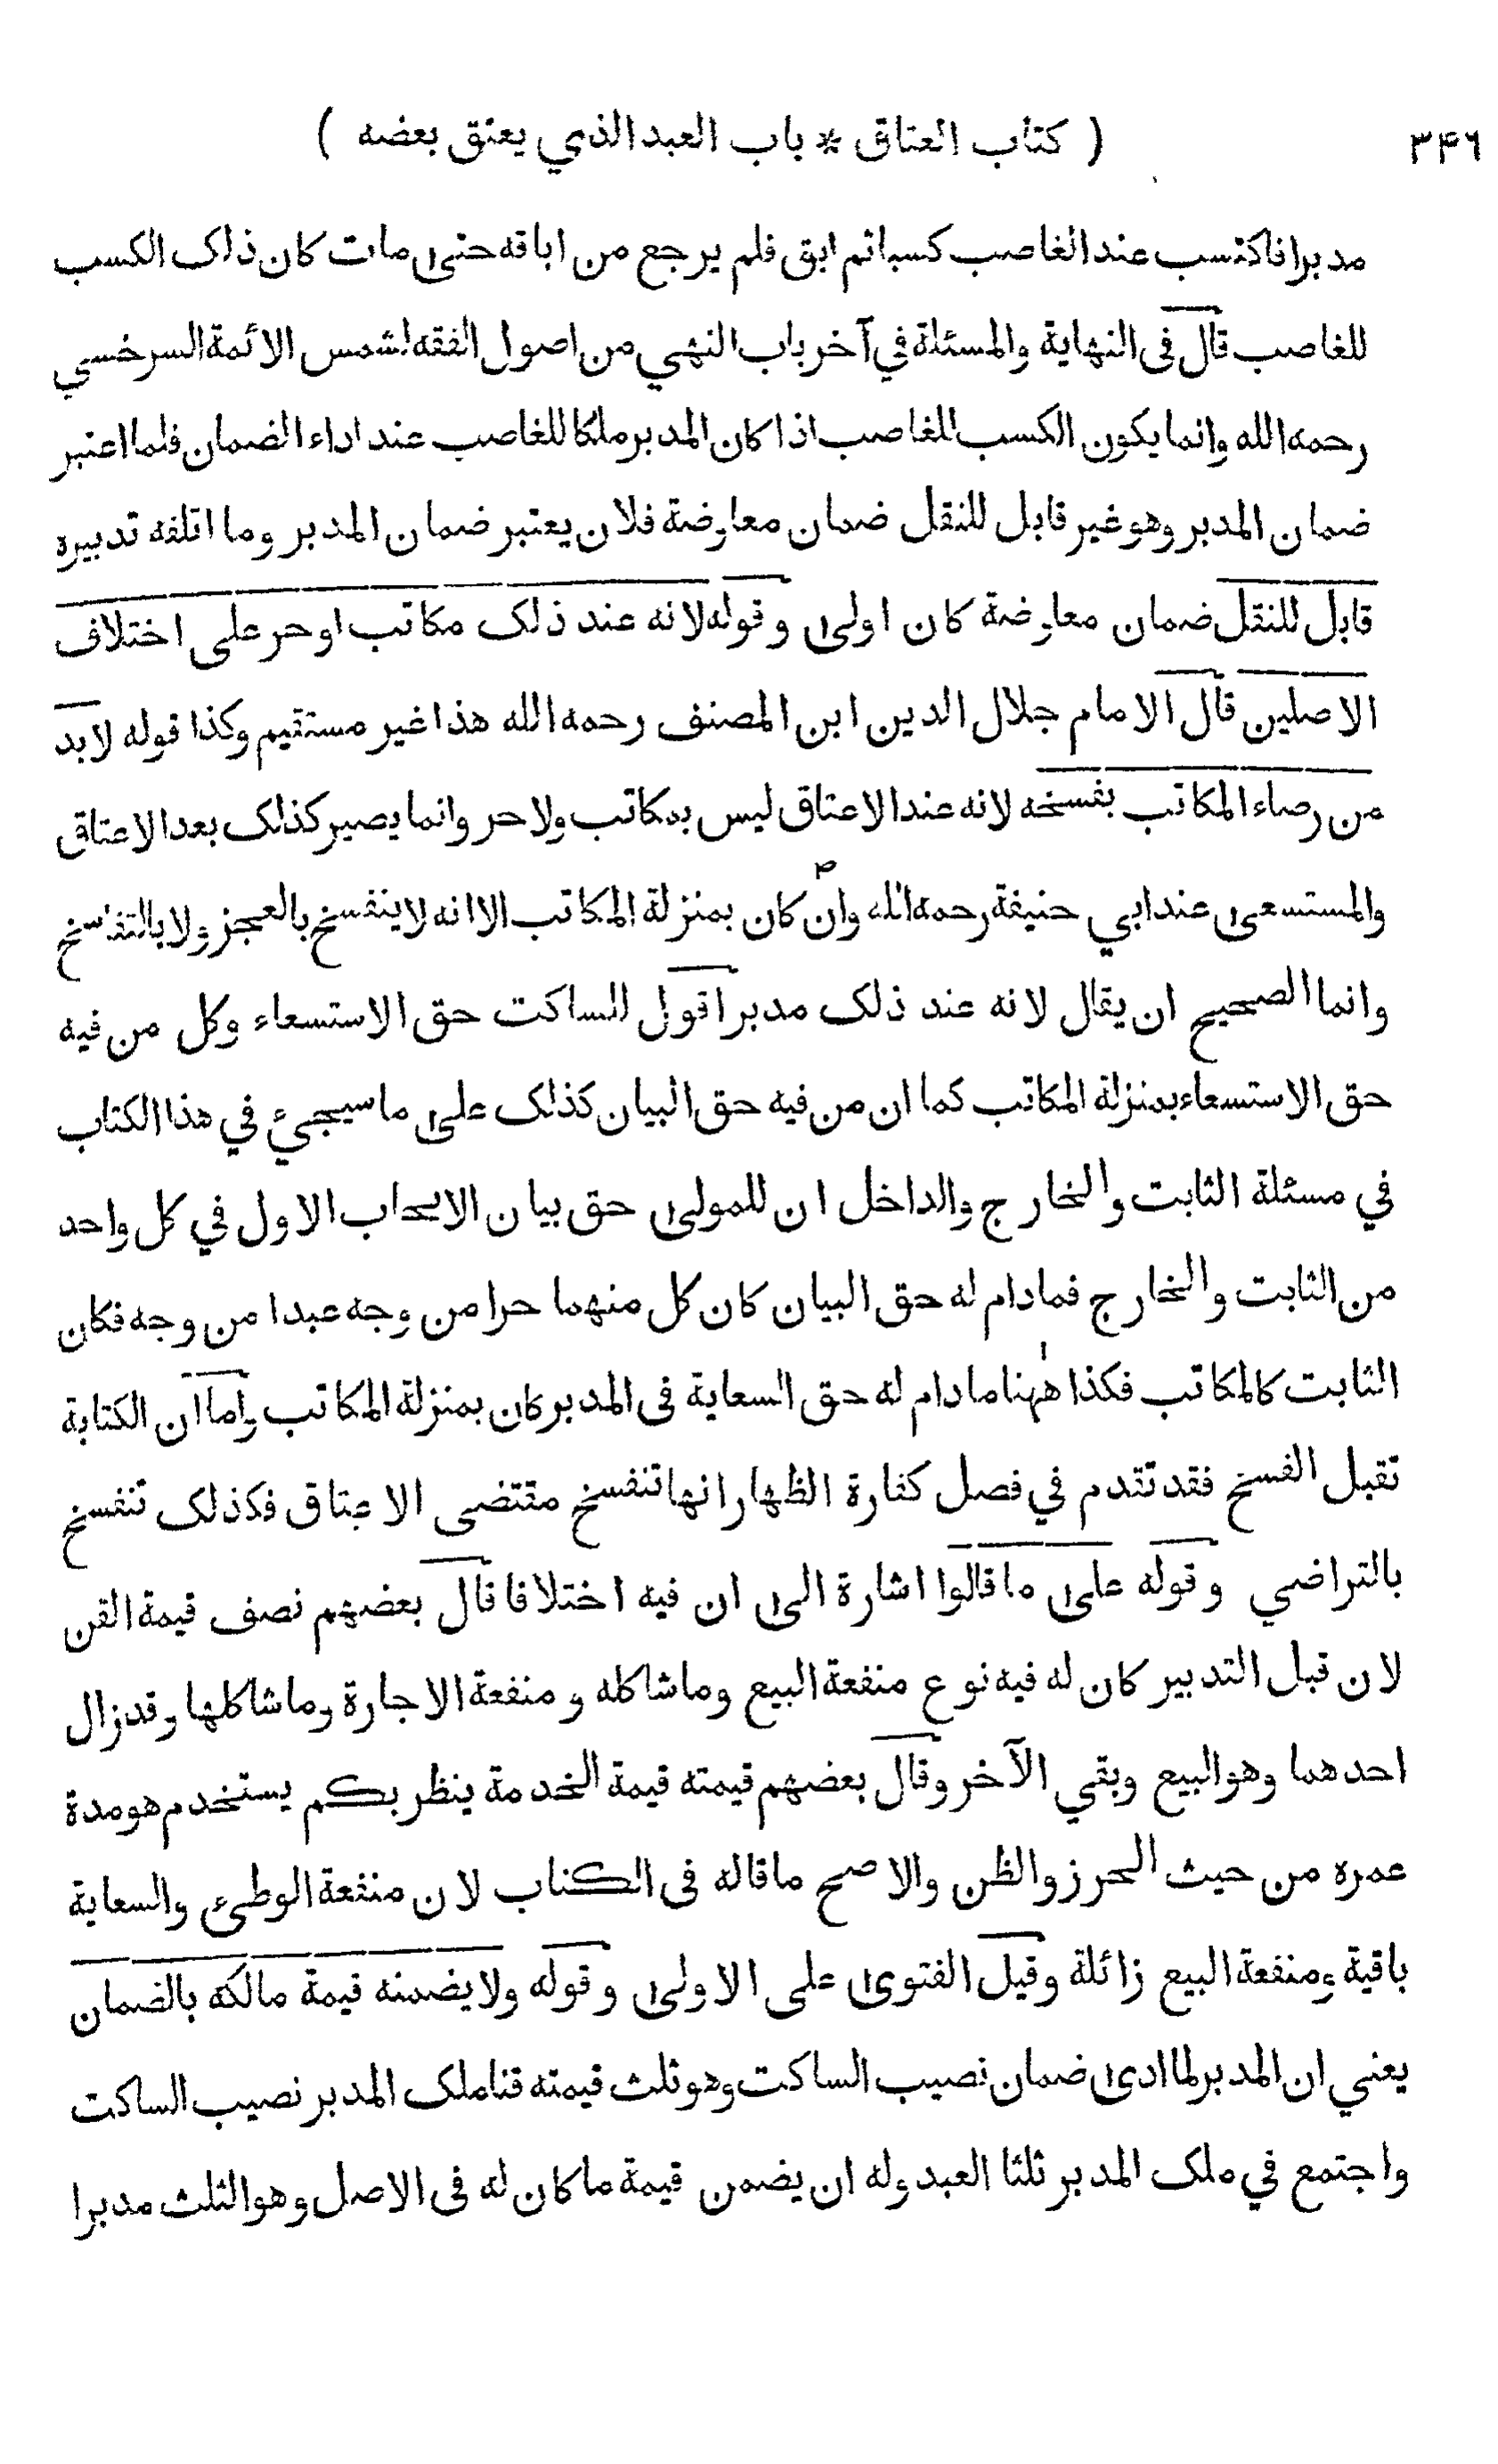 ۳۴۶
( كتاب العتاق * باب العبد الذي يعتق بعضه )
مدبرا فاكتسب عند الغاصب كسبا ثم ابق فلم يرجع من اباقه حتى مات كان ذلك الكسب
للغاصب قال في النهاية والمسئلة في آخر باب النهي من اصول الفقه لشمس الائمة السرخسي
رحمه الله وانما يكون الكسب للغاصب اذا كان المدبر ملكا للغاصب عند اداء الضمان فلما اعتبر
ضمان المدبر وهو غير قابل للنقل ضمان معاوضة فلان يعتبر ضمان المدبر وما اتلفه تدبيره
قابل للنقل ضمان معاوضة كان اولى وقوله لانه عند ذلك مكاتب او حر على اختلاف
الاصلين قال الامام جلال الدين ابن المصنف رحمه الله هذا غير مستقيم وكذا قوله لابد
من رضاء المكاتب بفسخه لانه عند الاعتاق ليس بمكاتب ولا حر وانما يصير كذلك بعد الاعتاق
والمستسعى عند ابي حنيفة رحمه الله وان كان بمنزلة المكاتب الا انه لا ينفسخ بالعجز ولا بالتفاسخ
وانما الصحيح ان يقال لانه عند ذلك مدبر اقول للساكت حق الاستسعاء وكل من فيه
حق الاستسعاء بمنزلة المكاتب كما ان من فيه حق البيان كذلك على ما سيجيء في هذا الكتاب
في مسئلة الثابت والخارج والداخل ان للمولى حق بيان الايجاب الاول في كل واحد
من الثابت والخارج فمادام له حق البيان كان كل منهما حرا من وجه عبدا من وجه فكان
الثابت كالمكاتب فكذا ههنا مادام له حق السعاية في المدبر كان بمنزلة المكاتب واما ان الكتابة
تقبل الفسخ فقد تقدم في فصل كفارة الظهار انها تنفسخ مقتضى الاعتاق فكذلك تنفسخ
بالتراضي وقوله على ما قالوا اشارة الى ان فيه اختلافا قال بعضهم نصف قيمة القن
لان قبل التدبير كان له فيه نوع منفعة البيع وما شاكله ومنفعة الاجارة وما شاكلها وقد زال
احدهما وهو البيع وبقي الآخر وقال بعضهم قيمته قيمة الخدمة ينظر بكم يستخدم هو مدة
عمره من حيث الحرز والظن والاصح ما قاله في الكتاب لان منفعة الوطيء والسعاية
باقية ومنفعة البيع زائلة وقيل الفتوى على الاولى وقوله ولا يضمنه قيمة ما لكه بالضمان
يعني ان المدبر لما ادى ضمان نصيب الساكت وهو ثلث قيمته قنا ملك المدبر نصيب الساكت
واجتمع في ملك المدبر ثلثا العبد وله ان يضمن قيمة ما كان له في الاصل وهو الثلث مدبرا